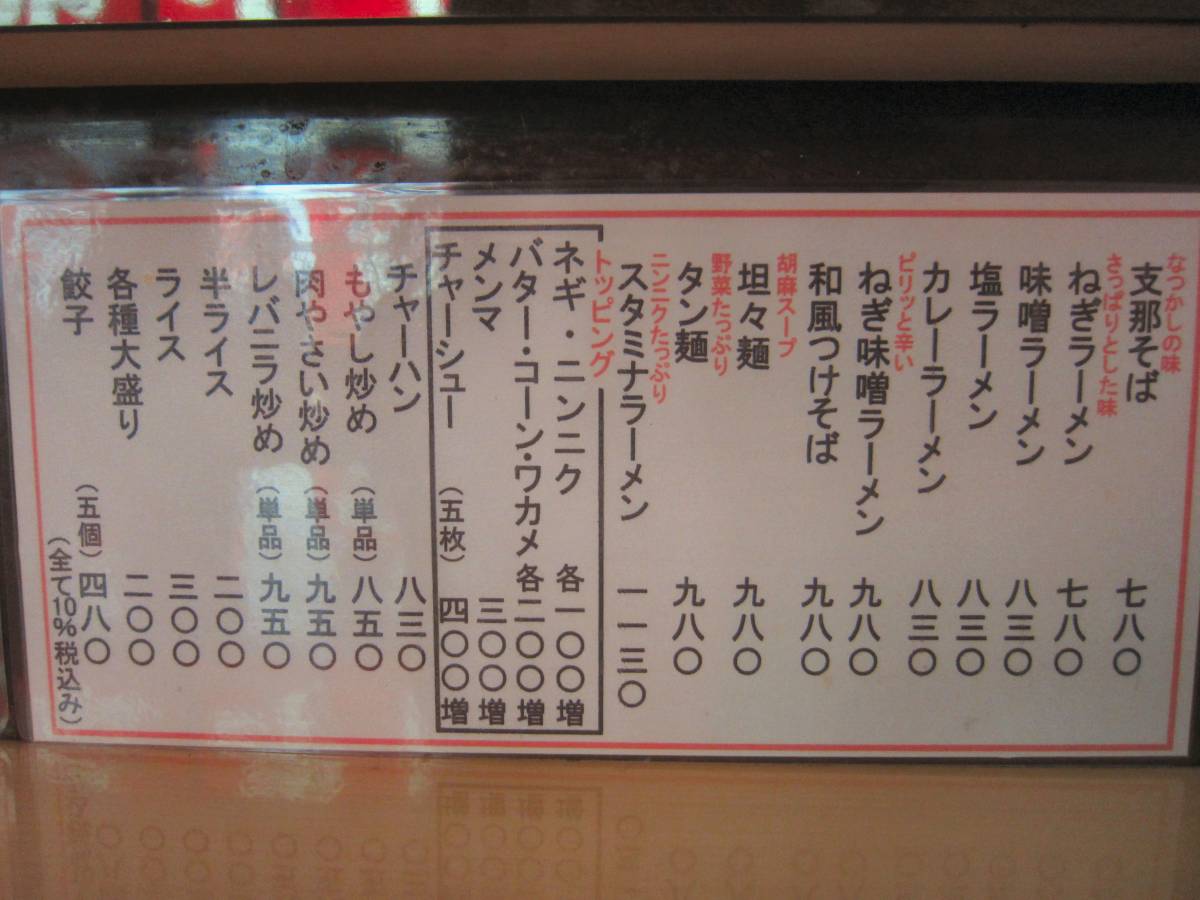 なつかしの味
支那そば 七八〇
さっぱりとした味
ねぎラーメン 七八〇
味噌ラーメン 八三〇
塩ラーメン 八三〇
カレーラーメン 八三〇
ピリッと辛い
ねぎ味噌ラーメン 九八〇
和風つけそば 九八〇
胡麻スープ
坦々麺 九八〇
野菜たっぷり
タン麺 九八〇
ニンニクたっぷり
スタミナラーメン 一一三〇
トッピング
ネギ・ニンニク 各一〇〇増
バター・コーン・ワカメ 各二〇〇増
メンマ 三〇〇増
チャーシュー (五枚) 四〇〇増
チャーハン 八三〇
もやし炒め (単品) 八五〇
肉やさい炒め (単品) 九五〇
レバニラ炒め (単品) 九五〇
半ライス 二〇〇
ライス 三〇〇
各種大盛り 二〇〇
餃子 (五個) 四八〇
(全て10%税込み)